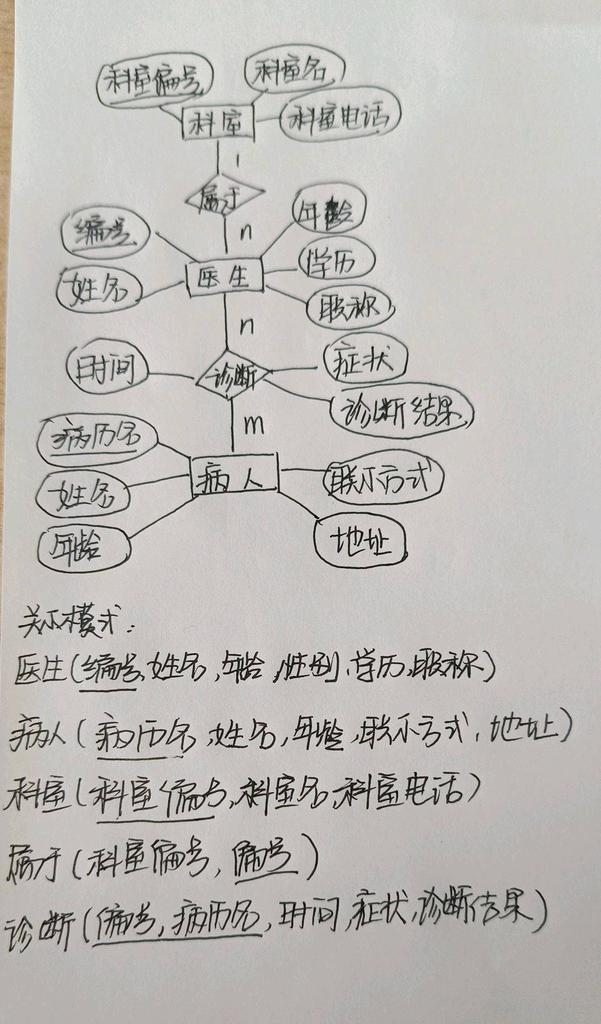 科室编号
科室名
科室
科室电话
1
属于
n
编号
年龄
学历
医生
姓名
职称
n
时间
诊断
症状
诊断结果
m
病历名
病人
联系方式
姓名
年龄
地址
关系模式:
医生(编号,姓名,年龄,性别,学历,职称)
病人(病历名,姓名,年龄,联系方式,地址)
科室(科室编号,科室名,科室电话)
属于(科室编号,编号)
诊断(编号,病历名,时间,症状,诊断结果)